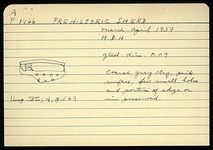 A
P 1466 PREHISTORIC SHERD
March-April 1937
H.D.H.
pltd. dim. 0.09
Coarse gray clay, 
surface, few small holes
and portion of edge or
rim preserved.
Hesp. VI, 4, p. 549